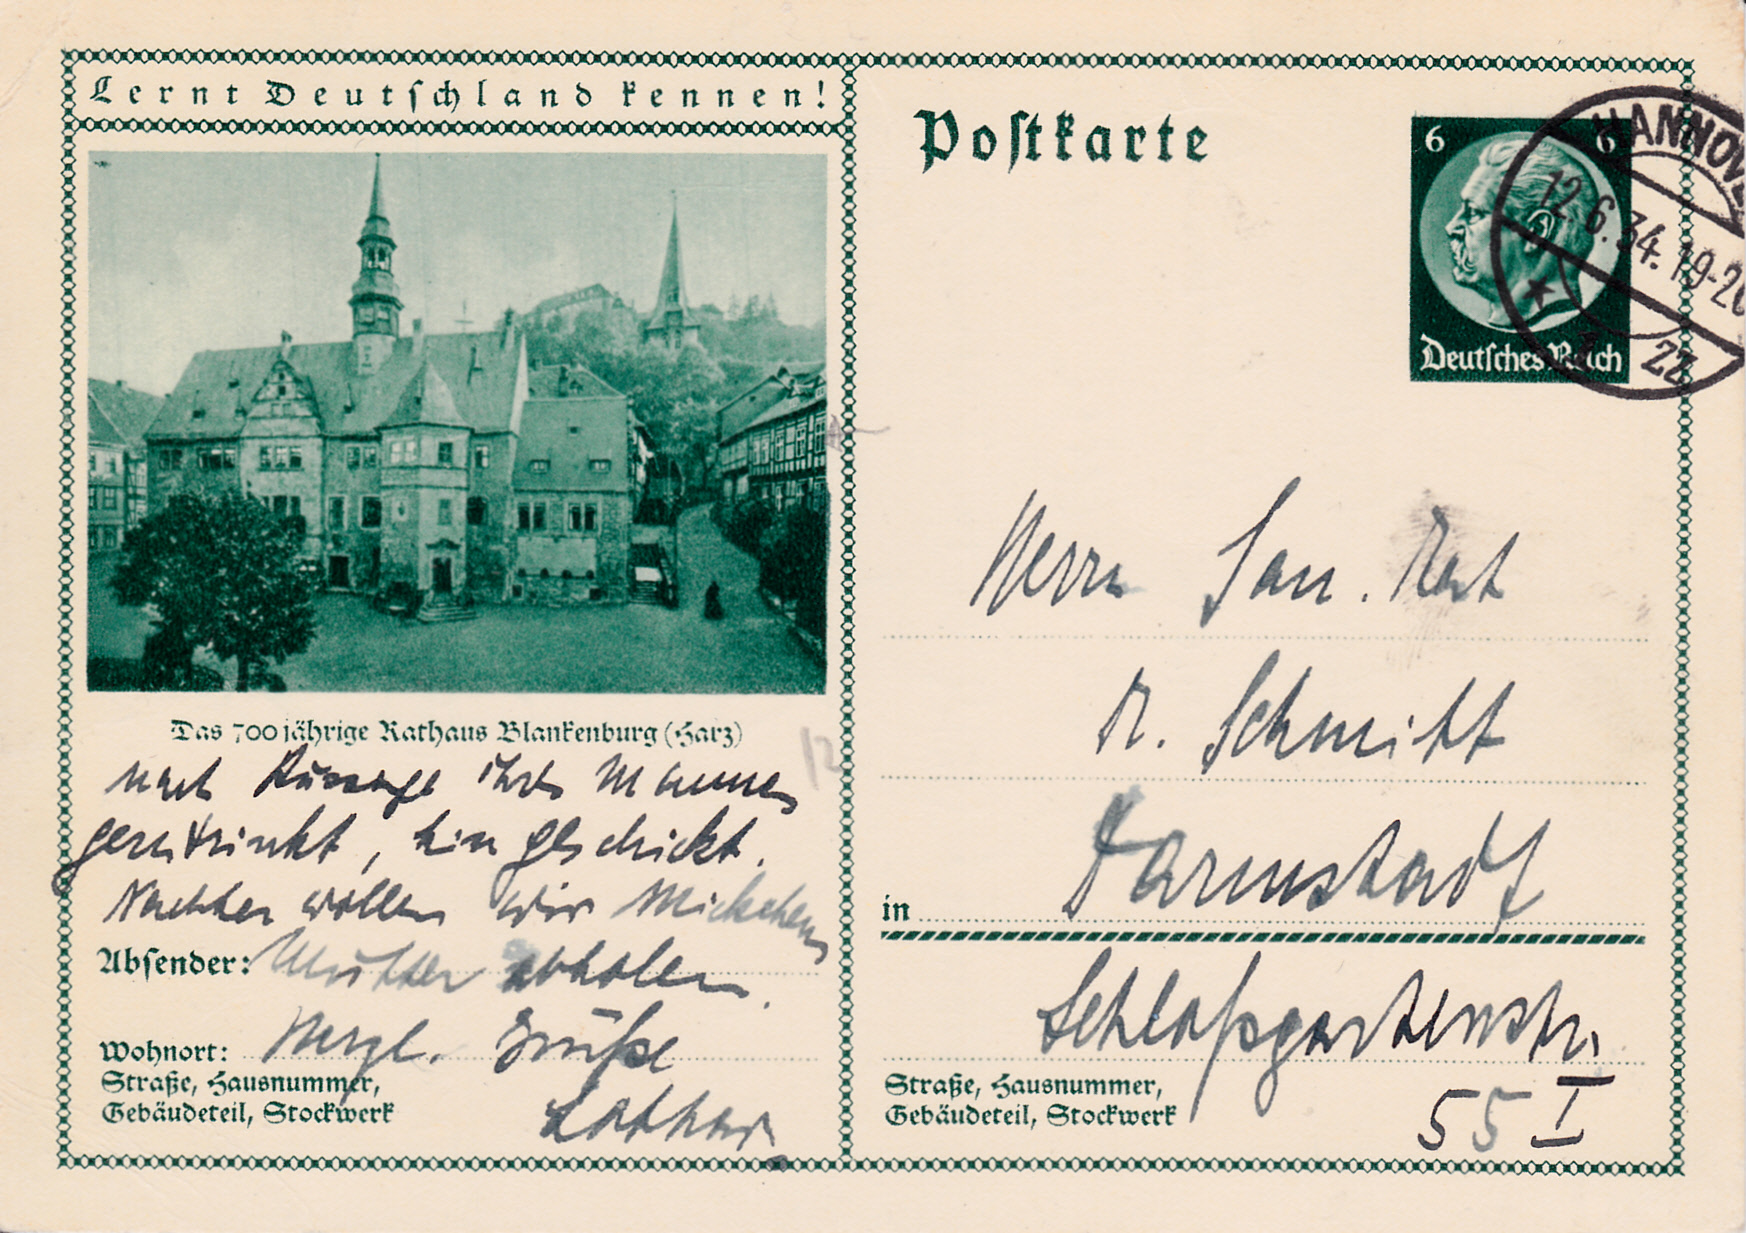 Lernt Deutschland kennen!
Das 700jährige Rathaus Blankenburg (Harz)
nach Aussage ihres Mannes
, hingeschickt.
Nachher wollen wir Mickchens
Absender: Mutter abholen.
Wohnort: Herzl. Grüße
Straße, Hausnummer,
Gebäudeteil, Stockwerk
Lothar
12
Postkarte
6 6
Deutsches Reich
HANNOVE
12.6.34.19-20
1 zz
Herrn San. Rat
Dr. Schmitt
in Darmstadt
Schloßgartenstr.
Straße, Hausnummer,
Gebäudeteil, Stockwerk
55 I